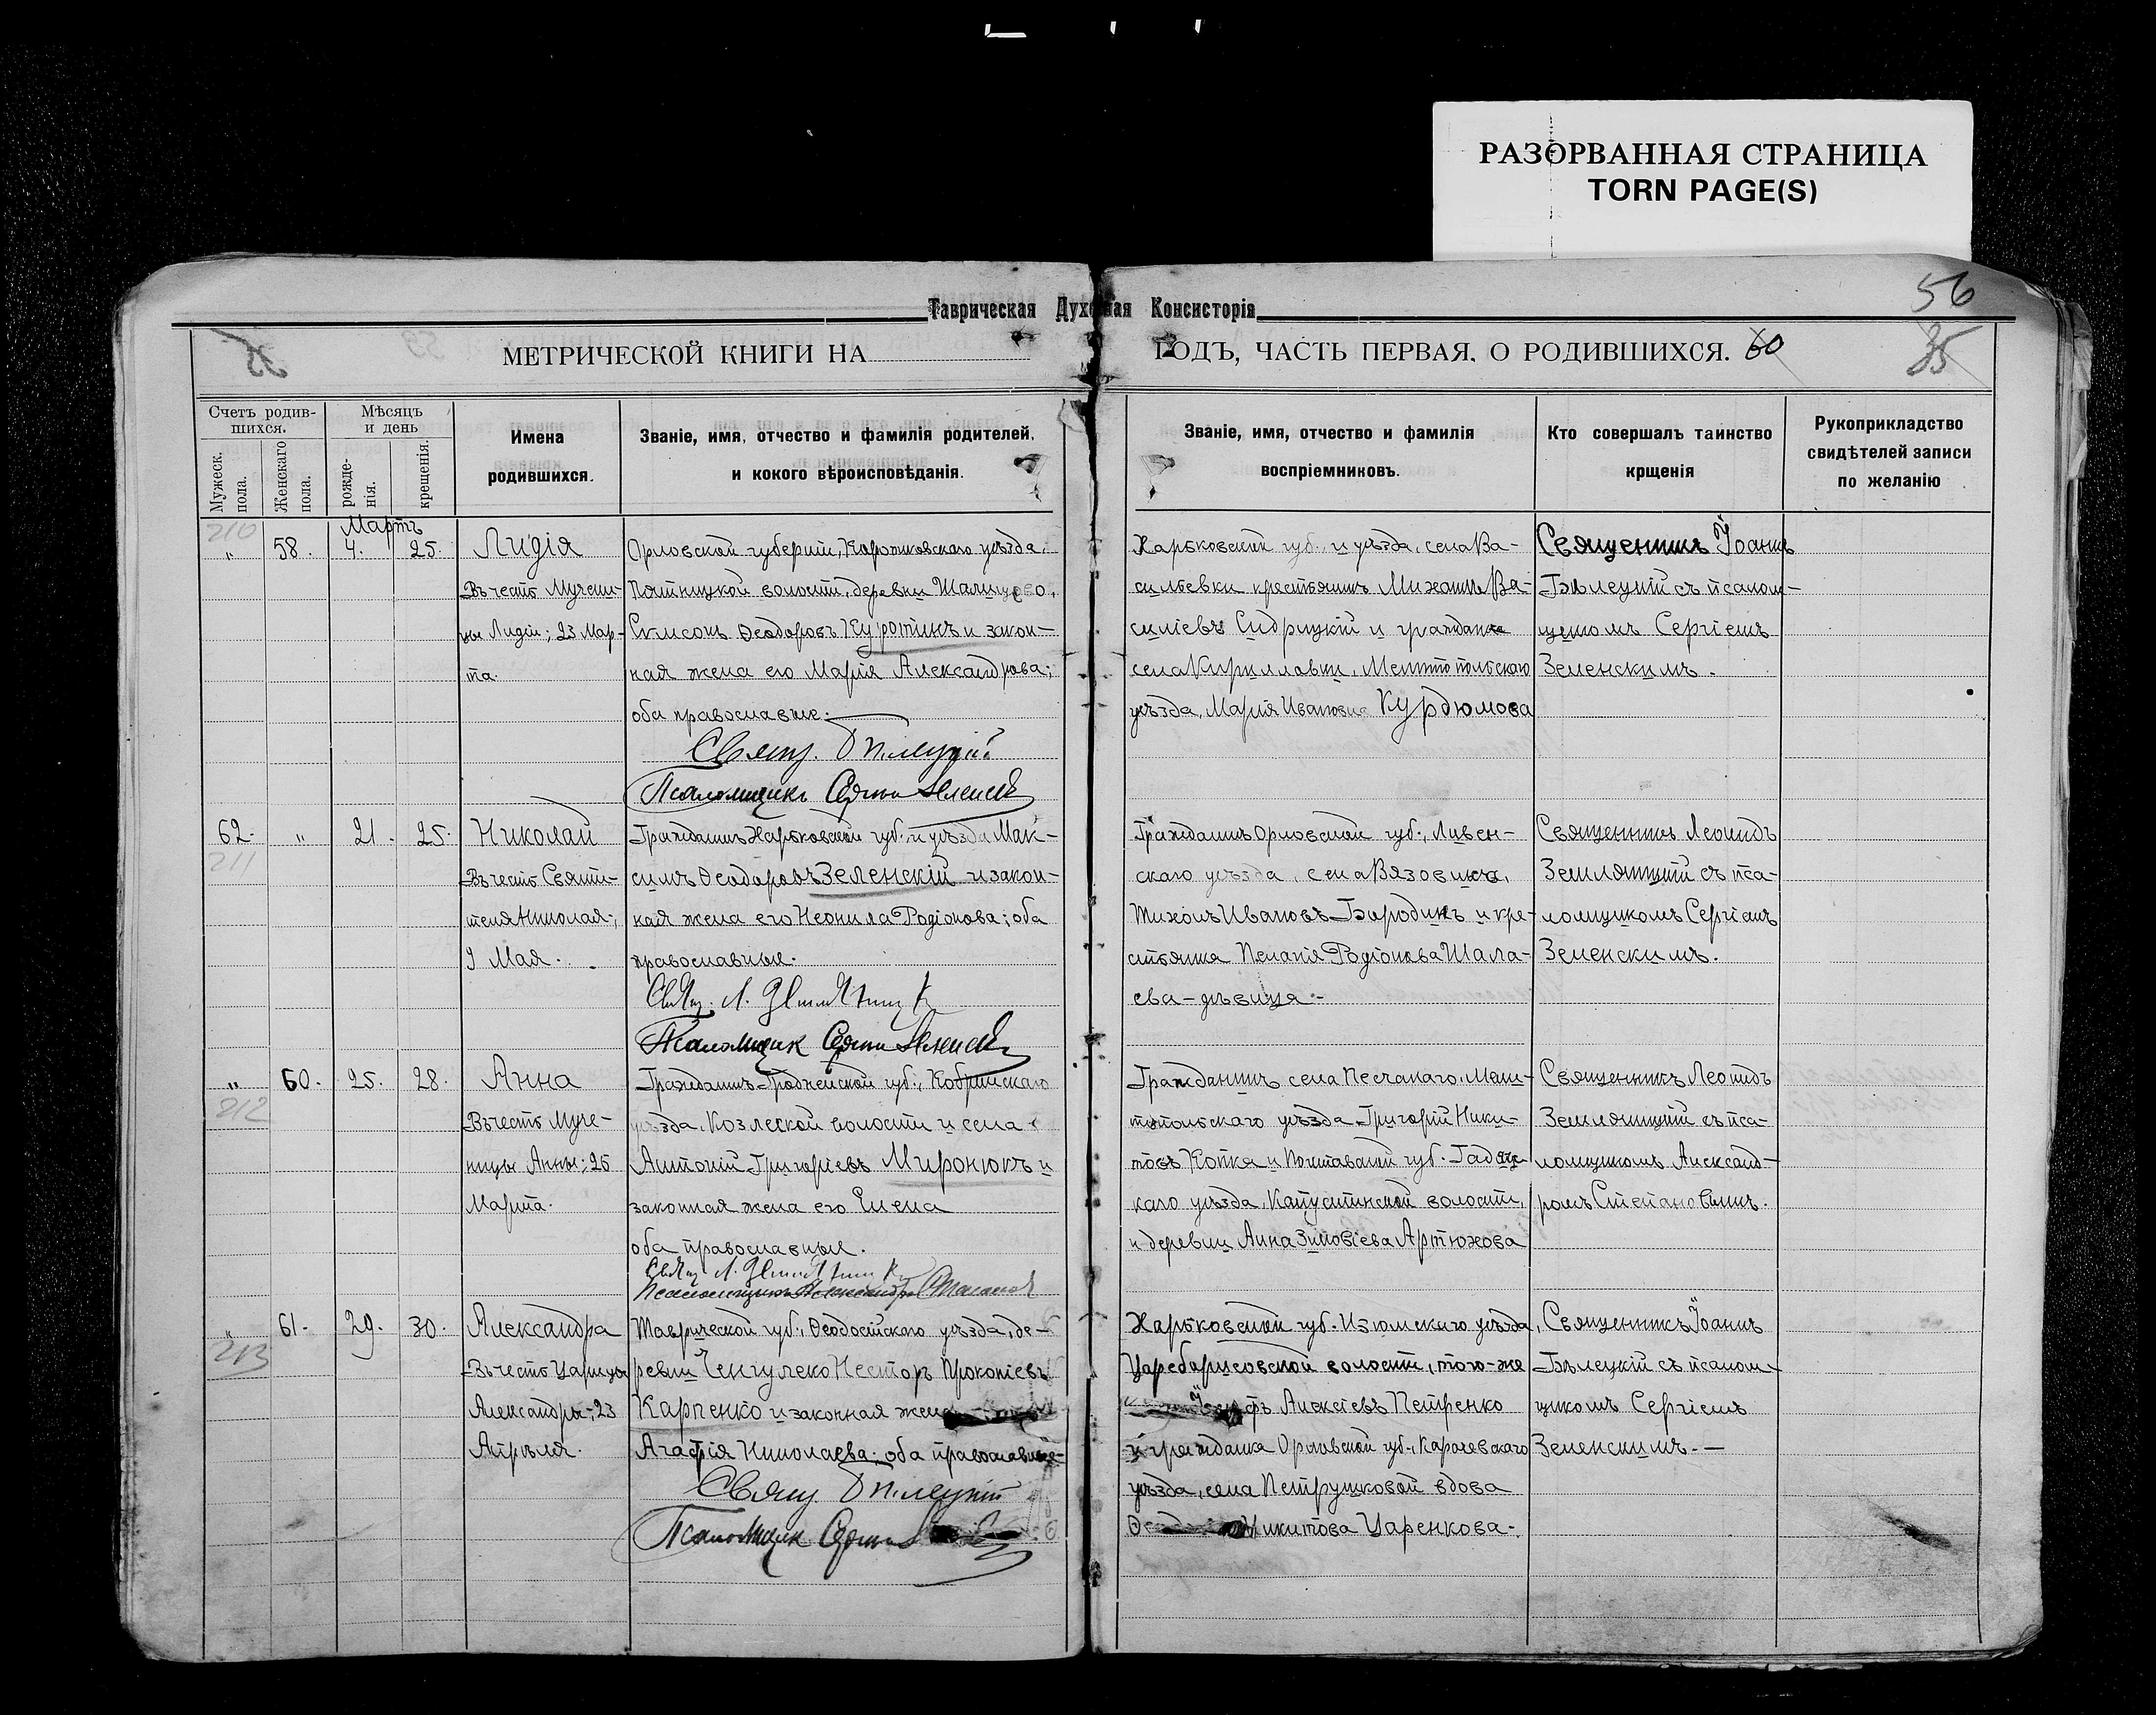 РАЗОРВАННАЯ СТРАНИЦА
TORN PAGE(S)
56
Таврическая Духовная Консисторія
МЕТРИЧЕСКОЙ КНИГИ НА ГОДЪ, ЧАСТЬ ПЕРВАЯ. О РОДИВШИХСЯ. 60 35
Счетъ родив-
шихся.
Мужеск. пола.
Женскаго пола.
Мѣсяцъ
и день
рожде-
нія.
крещенія.
Имена
родившихся.
Званіе, имя, отчество и фамилія родителей,
и кокого вѣроисповѣданія.
Званіе, имя, отчество и фамилія
воспріемниковъ.
Кто совершалъ таинство
крщенія
Рукоприкладство
свидѣтелей записи
по желанію
Мартъ
210
" 58. 4. 25.
Лидія
Въ честь Мучени-
цы Лидіи; 23 Мар-
та.
Орловской губерніи, уѣзда,
волости, деревни
Симеонъ Ѳеодоровъ Куротинъ и закон-
ная жена его Марія Александрова;
оба православные.
Свящ. Бѣлецкій
Псаломщикъ Сергій Зеленскій
Харьковской губ. и уѣзда, села Ва-
сильевки крестьянинъ Михаилъ Ва-
силіевъ Сидрицкій и гражданка
села Кирилловки, Мелитопольскаго
уѣзда, Марія Иванова Курдюмова
Священникъ Іоаннъ
Бѣлецкій съ псалом-
щикомъ Сергіемъ
Зеленскимъ.
62. " 21. 25.
211
Николай
Въ честь Святи-
теля Николая;
9 Мая.
Гражданинъ Харьковской губ. и уѣзда Мак-
симъ Ѳеодоровъ Зеленскій и закон-
ная жена его Неонила Родіонова; оба
православные.
Свящ. Л. Земляницкій
Псаломщик Сергій Зеленскій
Гражданинъ Орловской губ., Ливен-
скаго уѣзда, села Вязовикъ,
Тихонъ Ивановъ Бородинъ и кре-
стьянка Пелагія Родіонова Шала-
ева-дѣвица.
Священникъ Леонидъ
Земляницкій съ пса-
ломщикомъ Сергіемъ
Зеленскимъ.
" 60. 25. 28.
212
Анна
Въ честь Муче-
ницы Анны; 26
Марта.
Гражданинъ Гродненской губ., Кобринскаго
уѣзда, волости и села
Антоній Григоріевъ Миронюкъ и
законная жена его Елена
оба православные.
Свящ. Л. Земляницкій
Псаломщикъ Александръ Степанов
Гражданинъ села Песчанаго, Мели-
топольскаго уѣзда Григорій Ники-
товъ Копка и Полтавской губ. Гадяч-
каго уѣзда, Капустинской волости,
и деревни Анна Зиновіева Артюхова
Священникъ Леонидъ
Земляницкій съ пса-
ломщикомъ Александ-
ромъ Степановымъ.
" 61. 29. 30.
213
Александра
Въ честь Царицы
Александры; 23
Апрѣля.
Таврической губ., Ѳеодосійскаго уѣзда, де-
ревни Ченгулеко Несторъ Прокопіевъ
Карпенко и законная жена
Агафія Николаева; оба православные.
Свящ. Бѣлецкій
Псаломщик Сергій
Харьковской губ. Изюмскаго уѣзда,
Царедарисовской волости, того-же
Алексіевъ Петренко
и гражданка Орловской губ., Карачевскаго
уѣзда, села Петрушковой вдова
Никитова Царенкова.
Священникъ Іоаннъ
Бѣлецкій съ псалом-
щикомъ Сергіемъ
Зеленскимъ.